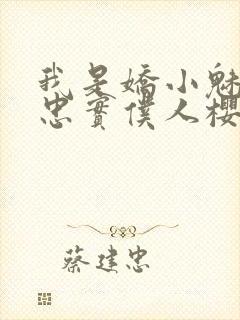 我是嬌小魅
忠實僕人櫻
蔡建忠